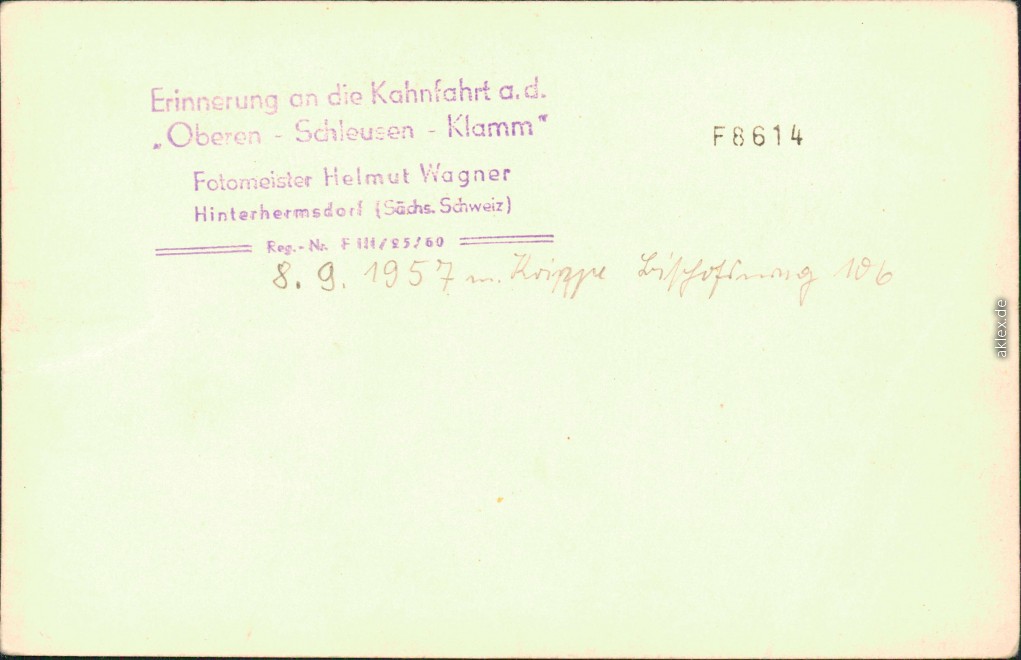 Erinnerung an die Kahnfahrt a.d.
„Oberen - Schleusen - Klamm"
F8614
Fotomeister Helmut Wagner
Hinterhermsdorf (Sächs. Schweiz)
Reg.-Nr. F III/25/60
8. 9. 1957 m. Krippe Bischofsweg 106
aklex.de